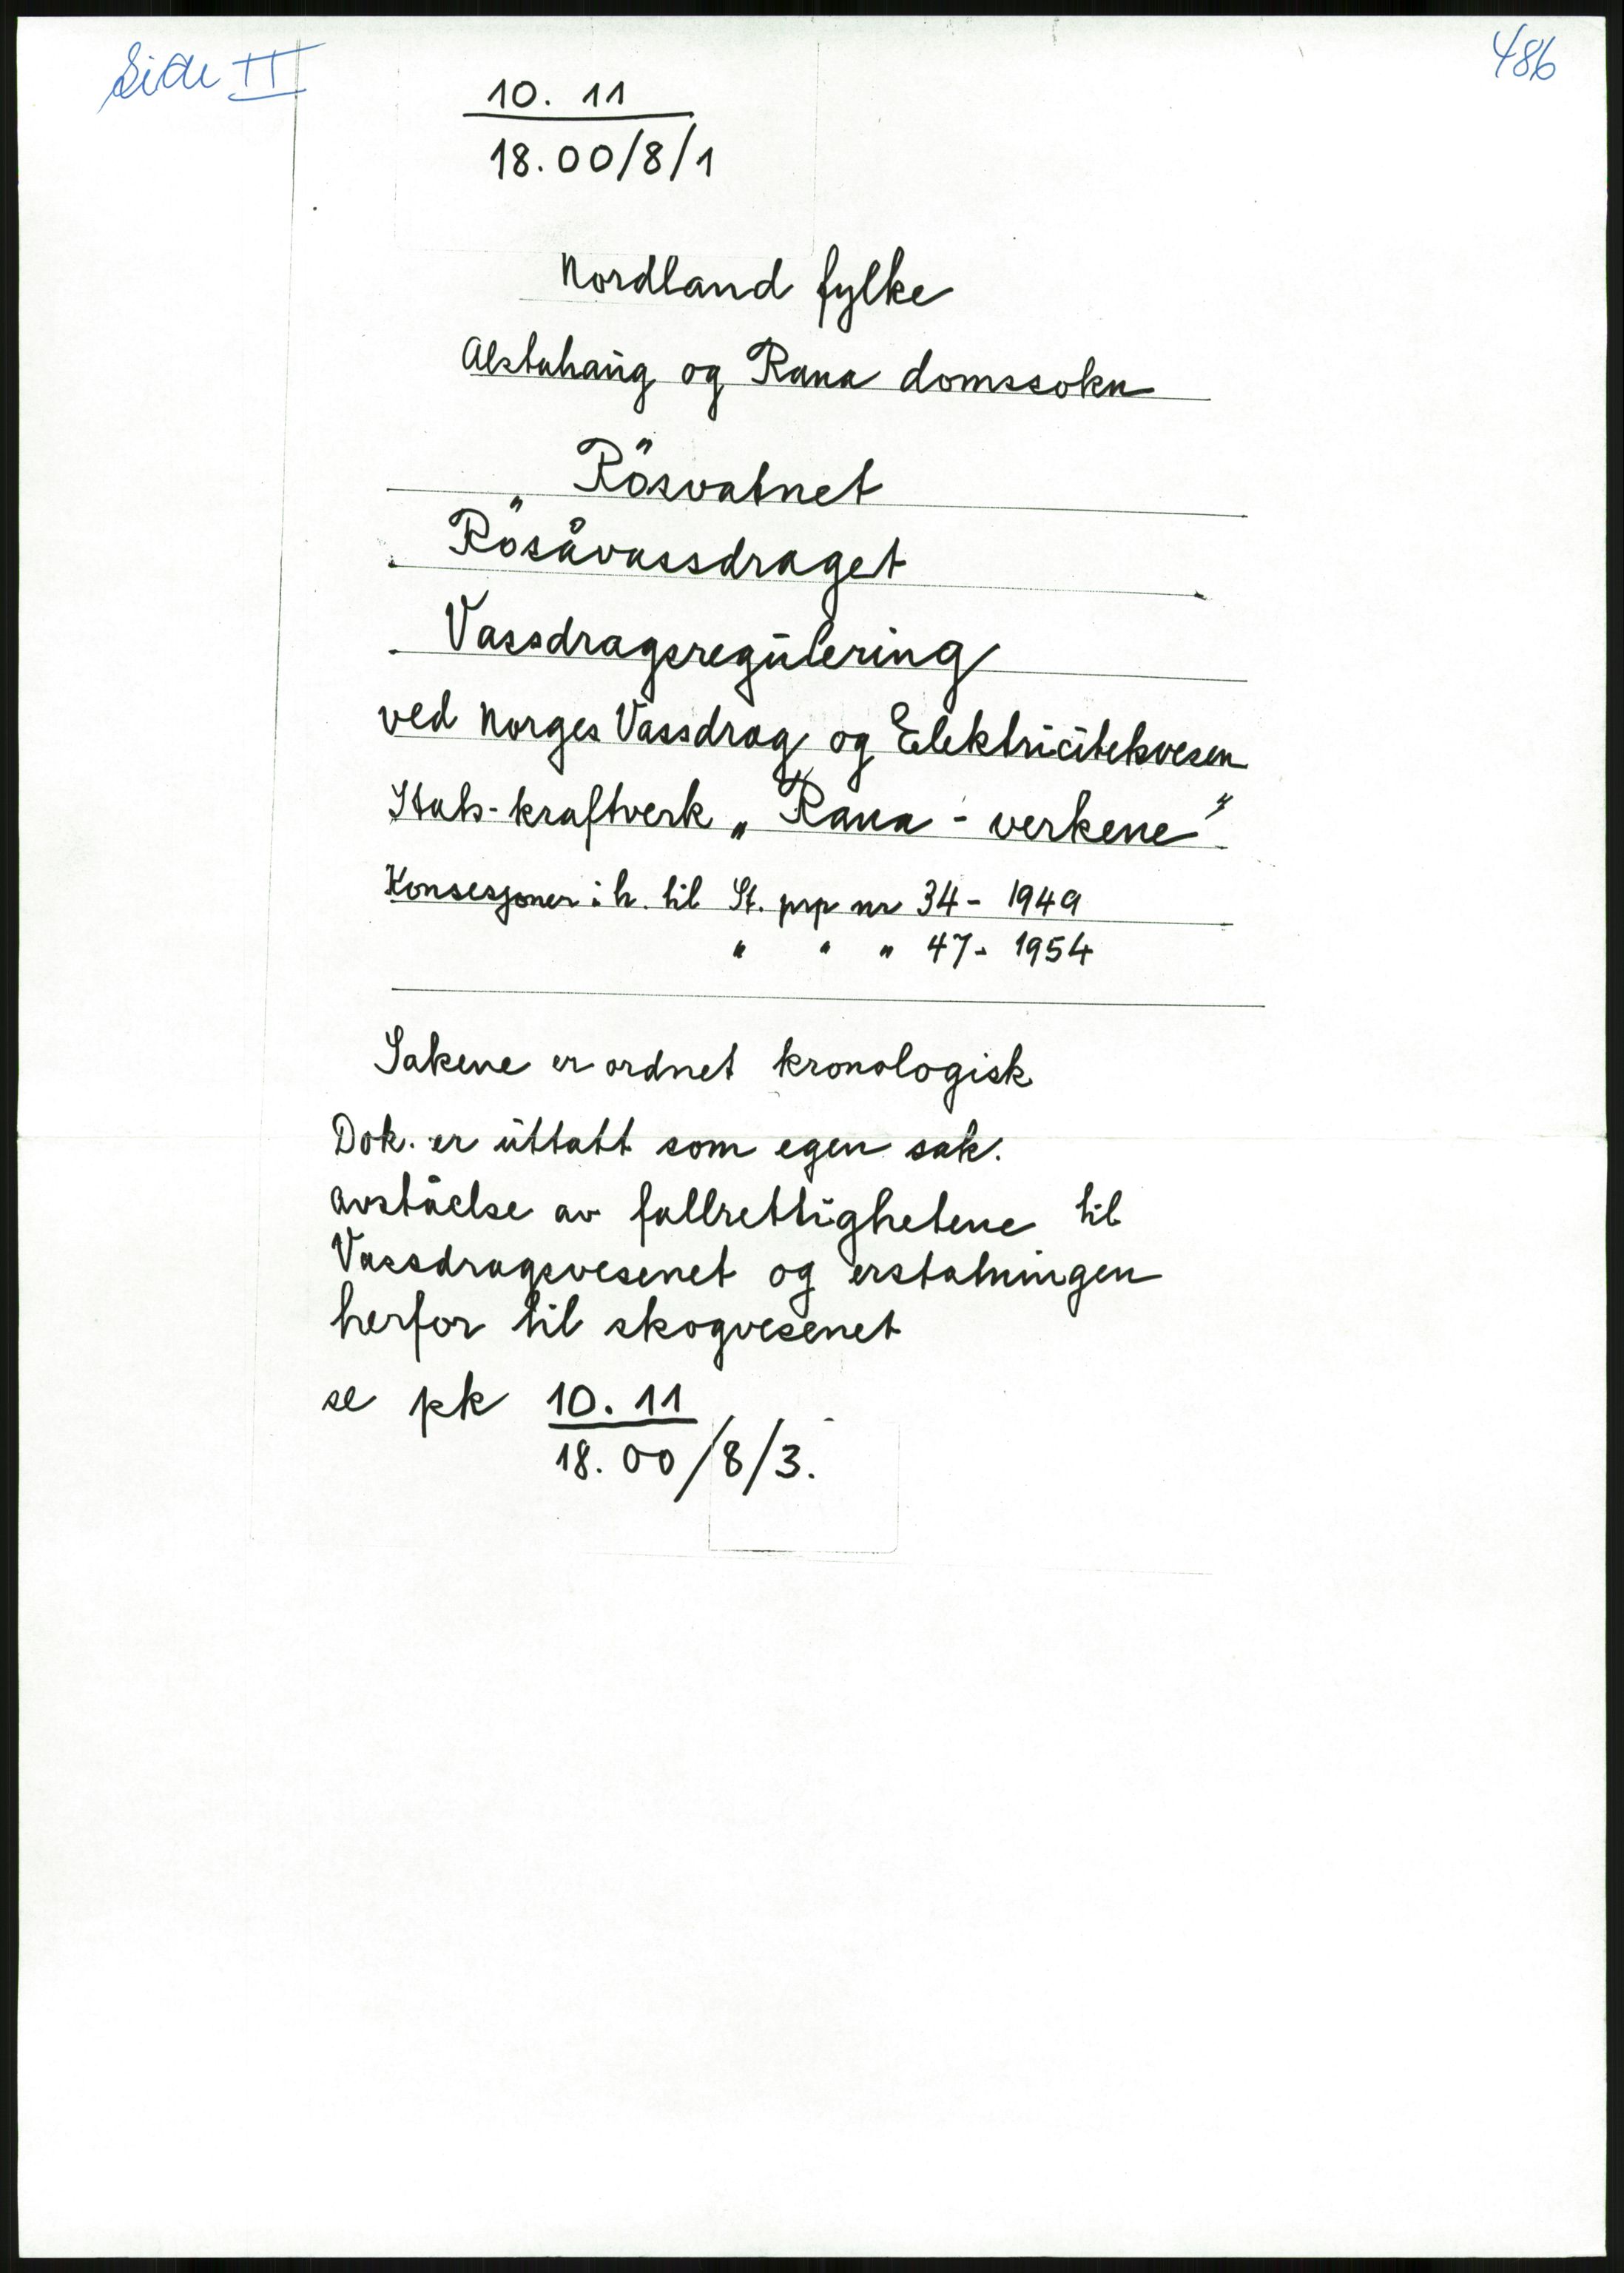 Side II
486
10. 11
18.00/8/1
Nordland fylke
Alstahaug og Rana domssokn
Rösvatnet
Rösåvassdraget
Vassdragsregulering
ved Norges Vassdrag og Elektricitetsvesen
Stats-kraftverk „Rana - verkene"
Konsesjoner i h. til St. prp nr 34 - 1949
" " " 47 - 1954
Sakene er ordnet kronologisk
Dok. er uttatt som egen sak.
avståelse av fallrettighetene til
Vassdragsvesenet og erstatningen
herfor til skogvesenet
se pk 10. 11
18. 00/8/3.